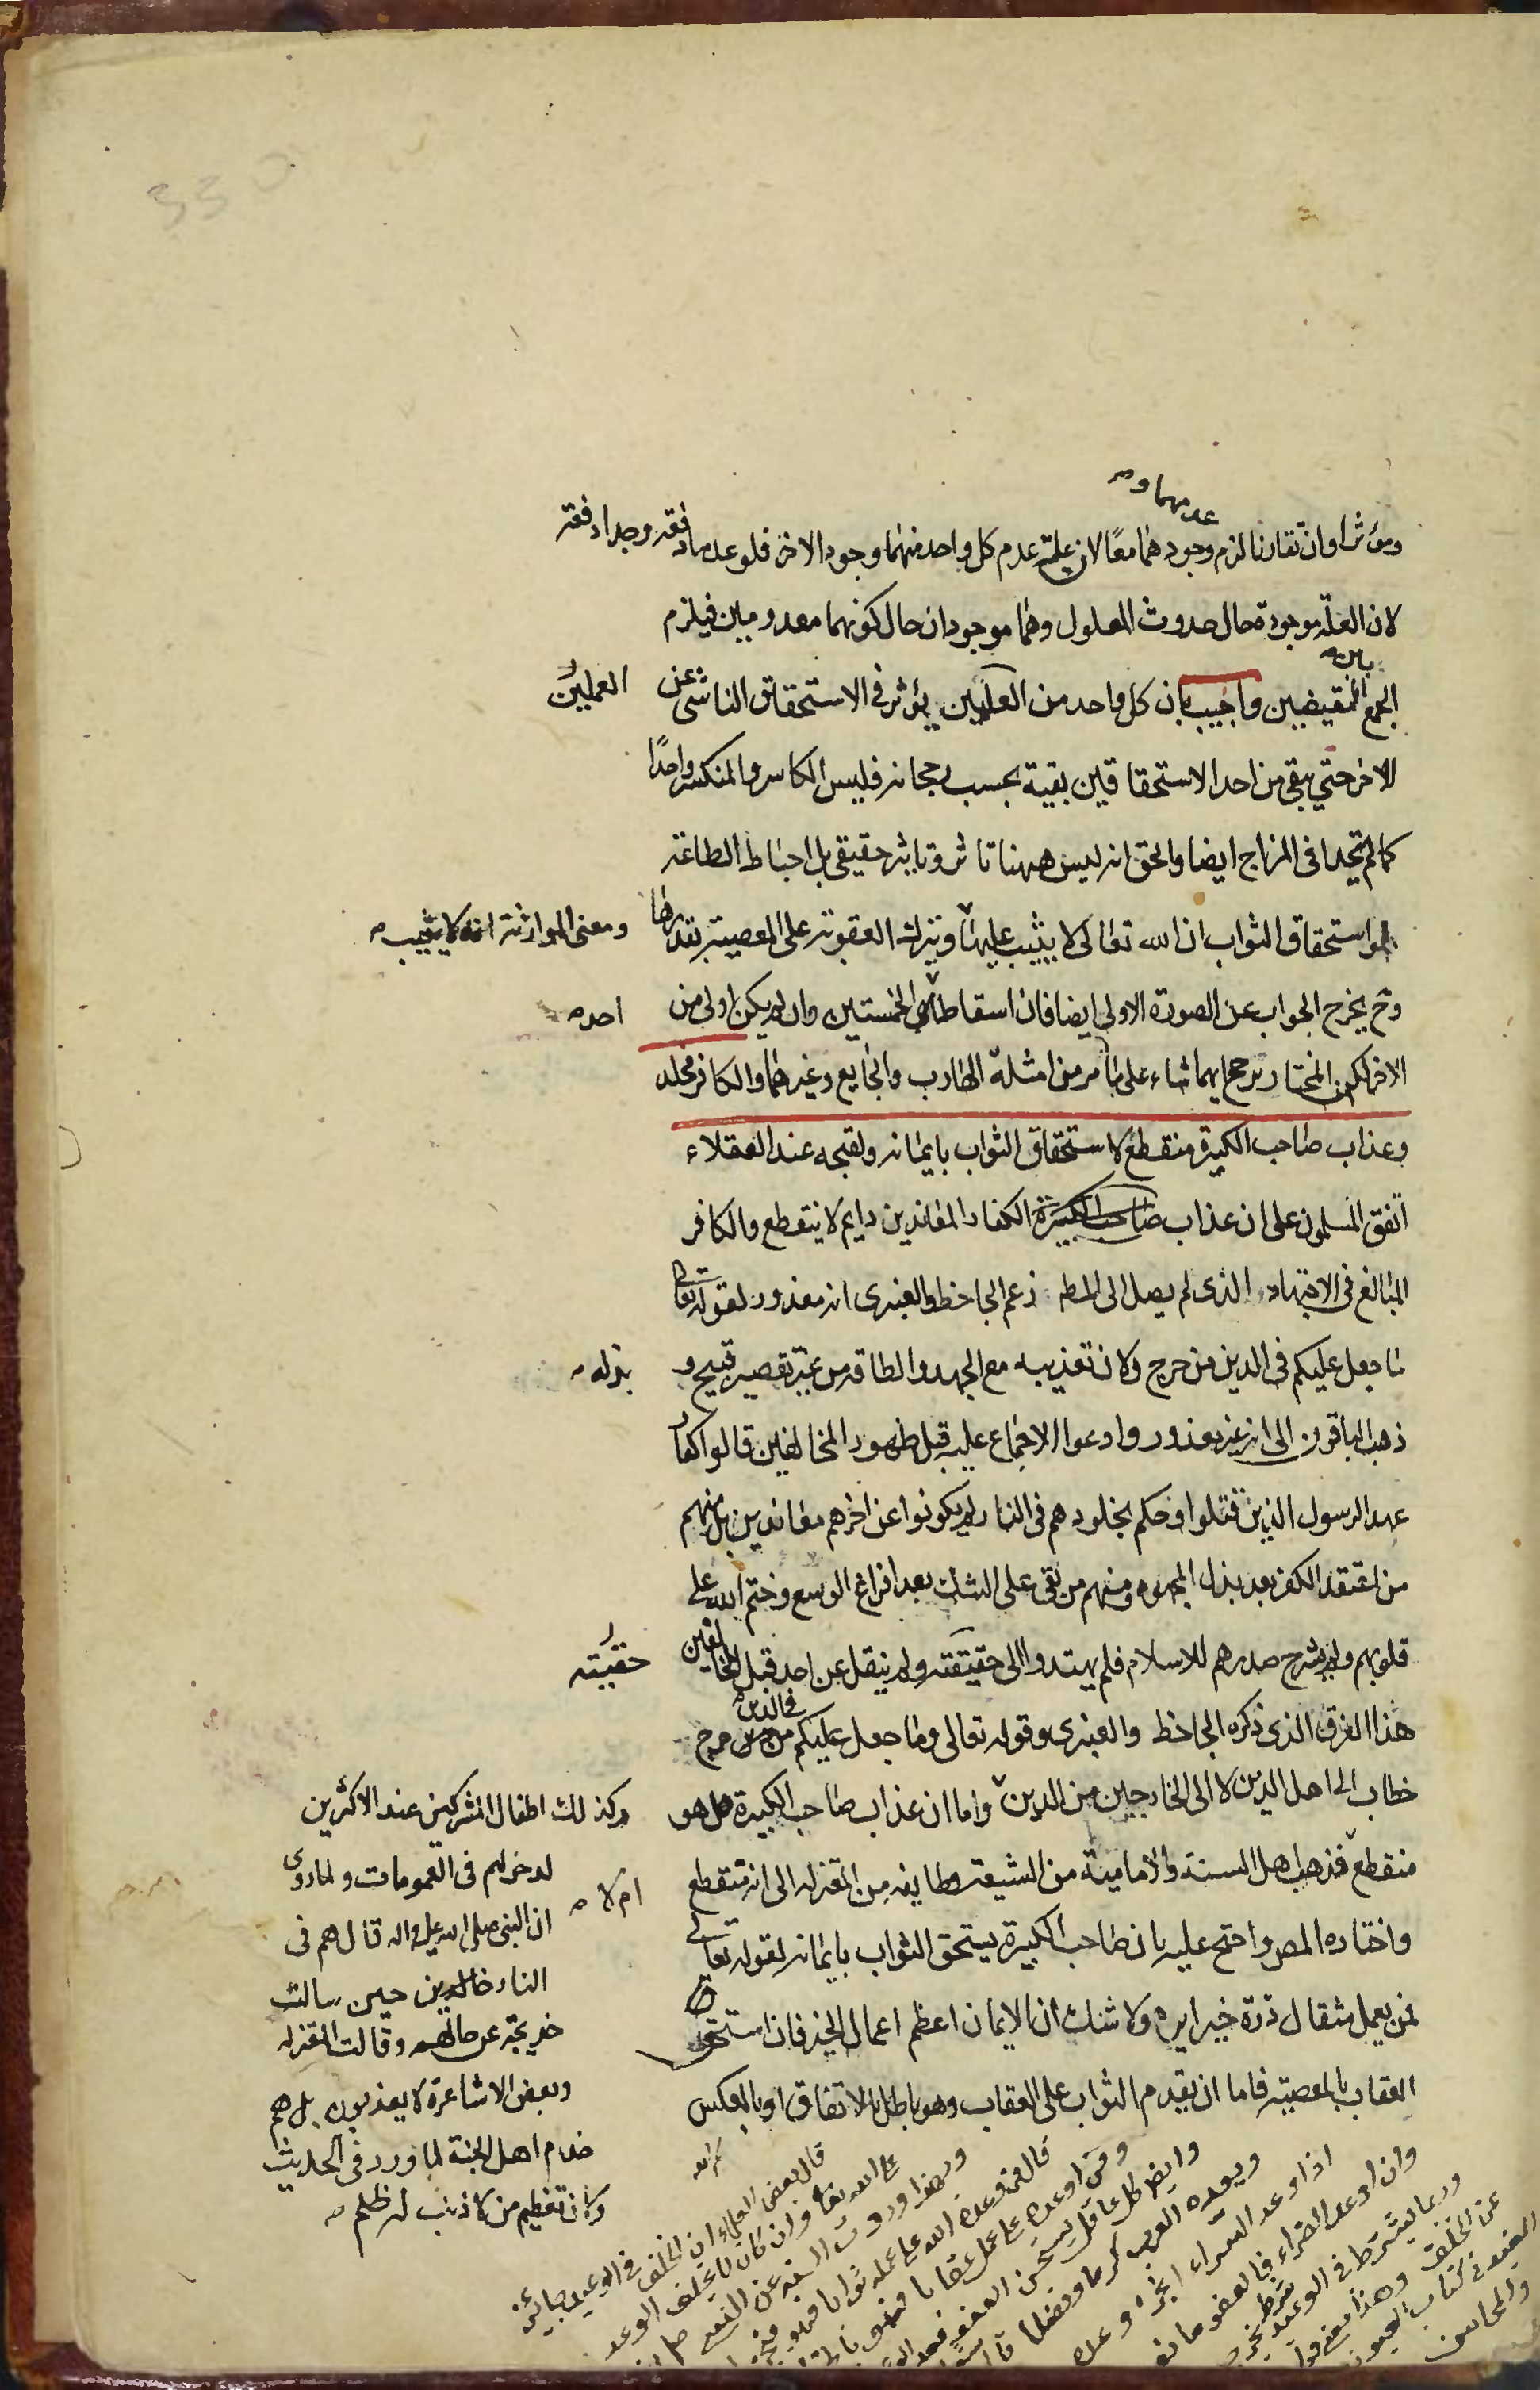 عدمهما و
ومؤثرا وان تقارنا لزم وجودهما معًا لان علة عدم كل واحد منهما وجود الاخر فلو عدما دفعة وجدا دفعة
لان العلة موجودة حال حدوث المعلول وهما موجودان حال كونهما معدومين فيلزم
بين
الجمع النقيضين واجيب بان كل واحد من العملين يؤثر في الاستحقاق الناشى عن
العملين
الاخر حتى يبقى من احد الاستحقاقين بقية بحسب رجحانه فليس الكاسر والمنكسر واحدًا
كما لم يتحدا فى المزاج ايضا والحق انه ليس ههنا تاثر وتاثير حقيقى بل احباط الطاعة
استحقاق الثواب ان الله تعالى لا يثيب عليها ويترك العقوبة على المعصية بقدرها
ومعنى الموازنة انه لا يثيب
وح يخرج الجواب عن الصورة الاولى ايضا فان اسقاط الخمستين وان لم يكن اولى من
احد
الاخر لكن المختار يرجح ايهما شاء على ما مر من امثلة الهارب والجايع وغيرهما والكافر مخلد
وعذاب صاحب الكبيرة منقطع لاستحقاق الثواب بايمانه ولقبحه عند العقلاء
اتفق المسلمون على ان عذاب صاحب الكبيرة الكفار المعاندين دايم لا ينقطع والكافر
المبالغ فى الاجتهاد الذى لم يصل الى المط زعم الجاحظ والعنبرى انه معذور لقوله تعالى
ما جعل عليكم فى الدين من حرج ولان تعذيبه مع الجهد والطاقة من غير تقصير قبيح و
بذله
ذهب الباقون الى انه غير معذور وادعوا الاجماع عليه قبل ظهور المخالفين قالوا كفار
عهد الرسول الذين قتلوا وحكم بخلودهم فى النار لم يكونوا عن اخرهم معاندين بل منهم
من اعتقد الكفر بعد بذل المجهود ومنهم من بقى على الشك بعد افراغ الوسع وختم الله على
قلوبهم ولم يشرح صدرهم للاسلام فلم يهتدوا الى حقيقته ولم ينقل عن احد قبل المخالفين
حقيته
هذا الفرق الذى ذكره الجاحظ والعنبرى وقوله تعالى وما جعل عليكم فى الدين من حرج
خطاب الى اهل الدين لا الى الخارجين من الدين واما ان عذاب صاحب الكبيرة هل هو
منقطع فذهب اهل السنة والامامية من الشيعة وطايفة من المعتزلة الى انه منقطع
ام لا
واختاره المصر واحتج عليه بان صاحب الكبيرة يستحق الثواب بايمانه لقوله تعالى
فمن يعمل مثقال ذرة خيرا يره ولا شك ان الايمان اعظم اعمال الخير فان استحق
العقاب بالمعصية فاما ان يقدم الثواب على العقاب وهو باطل بالاتفاق او بالعكس
وكذلك اطفال المشركين عند الاكثرين
لدخولهم فى العمومات ولما روى
ان النبى صلى الله عليه واله قال هم فى
النار خالدين حين سالت
خديجة عن حالهم وقالت المعتزلة
وبعض الاشاعرة لا يعذبون بل هم
خدام اهل الجنة لما ورد فى الحديث
ولان تعظيم من لا ذنب له ظلم
قال بعض العلماء ان الخلف فى الوعيد جائز
على الله تعالى وان كان لا يخلف الوعد
وبهذا وردت السنة عن النبى
قال من وعده الله على عمله ثوابا فهو
ومن اوعده على عمل عقابا فهو
وايضا كل عاقل يستحسن العفو بعد
ويعده العرب كرما وفضلا
اذا وعد السراء انجز وعده
وان اوعد الضراء فالعفو مانعه
وربما يشترط فى الوعيد
عن الخلف وهذا معنى